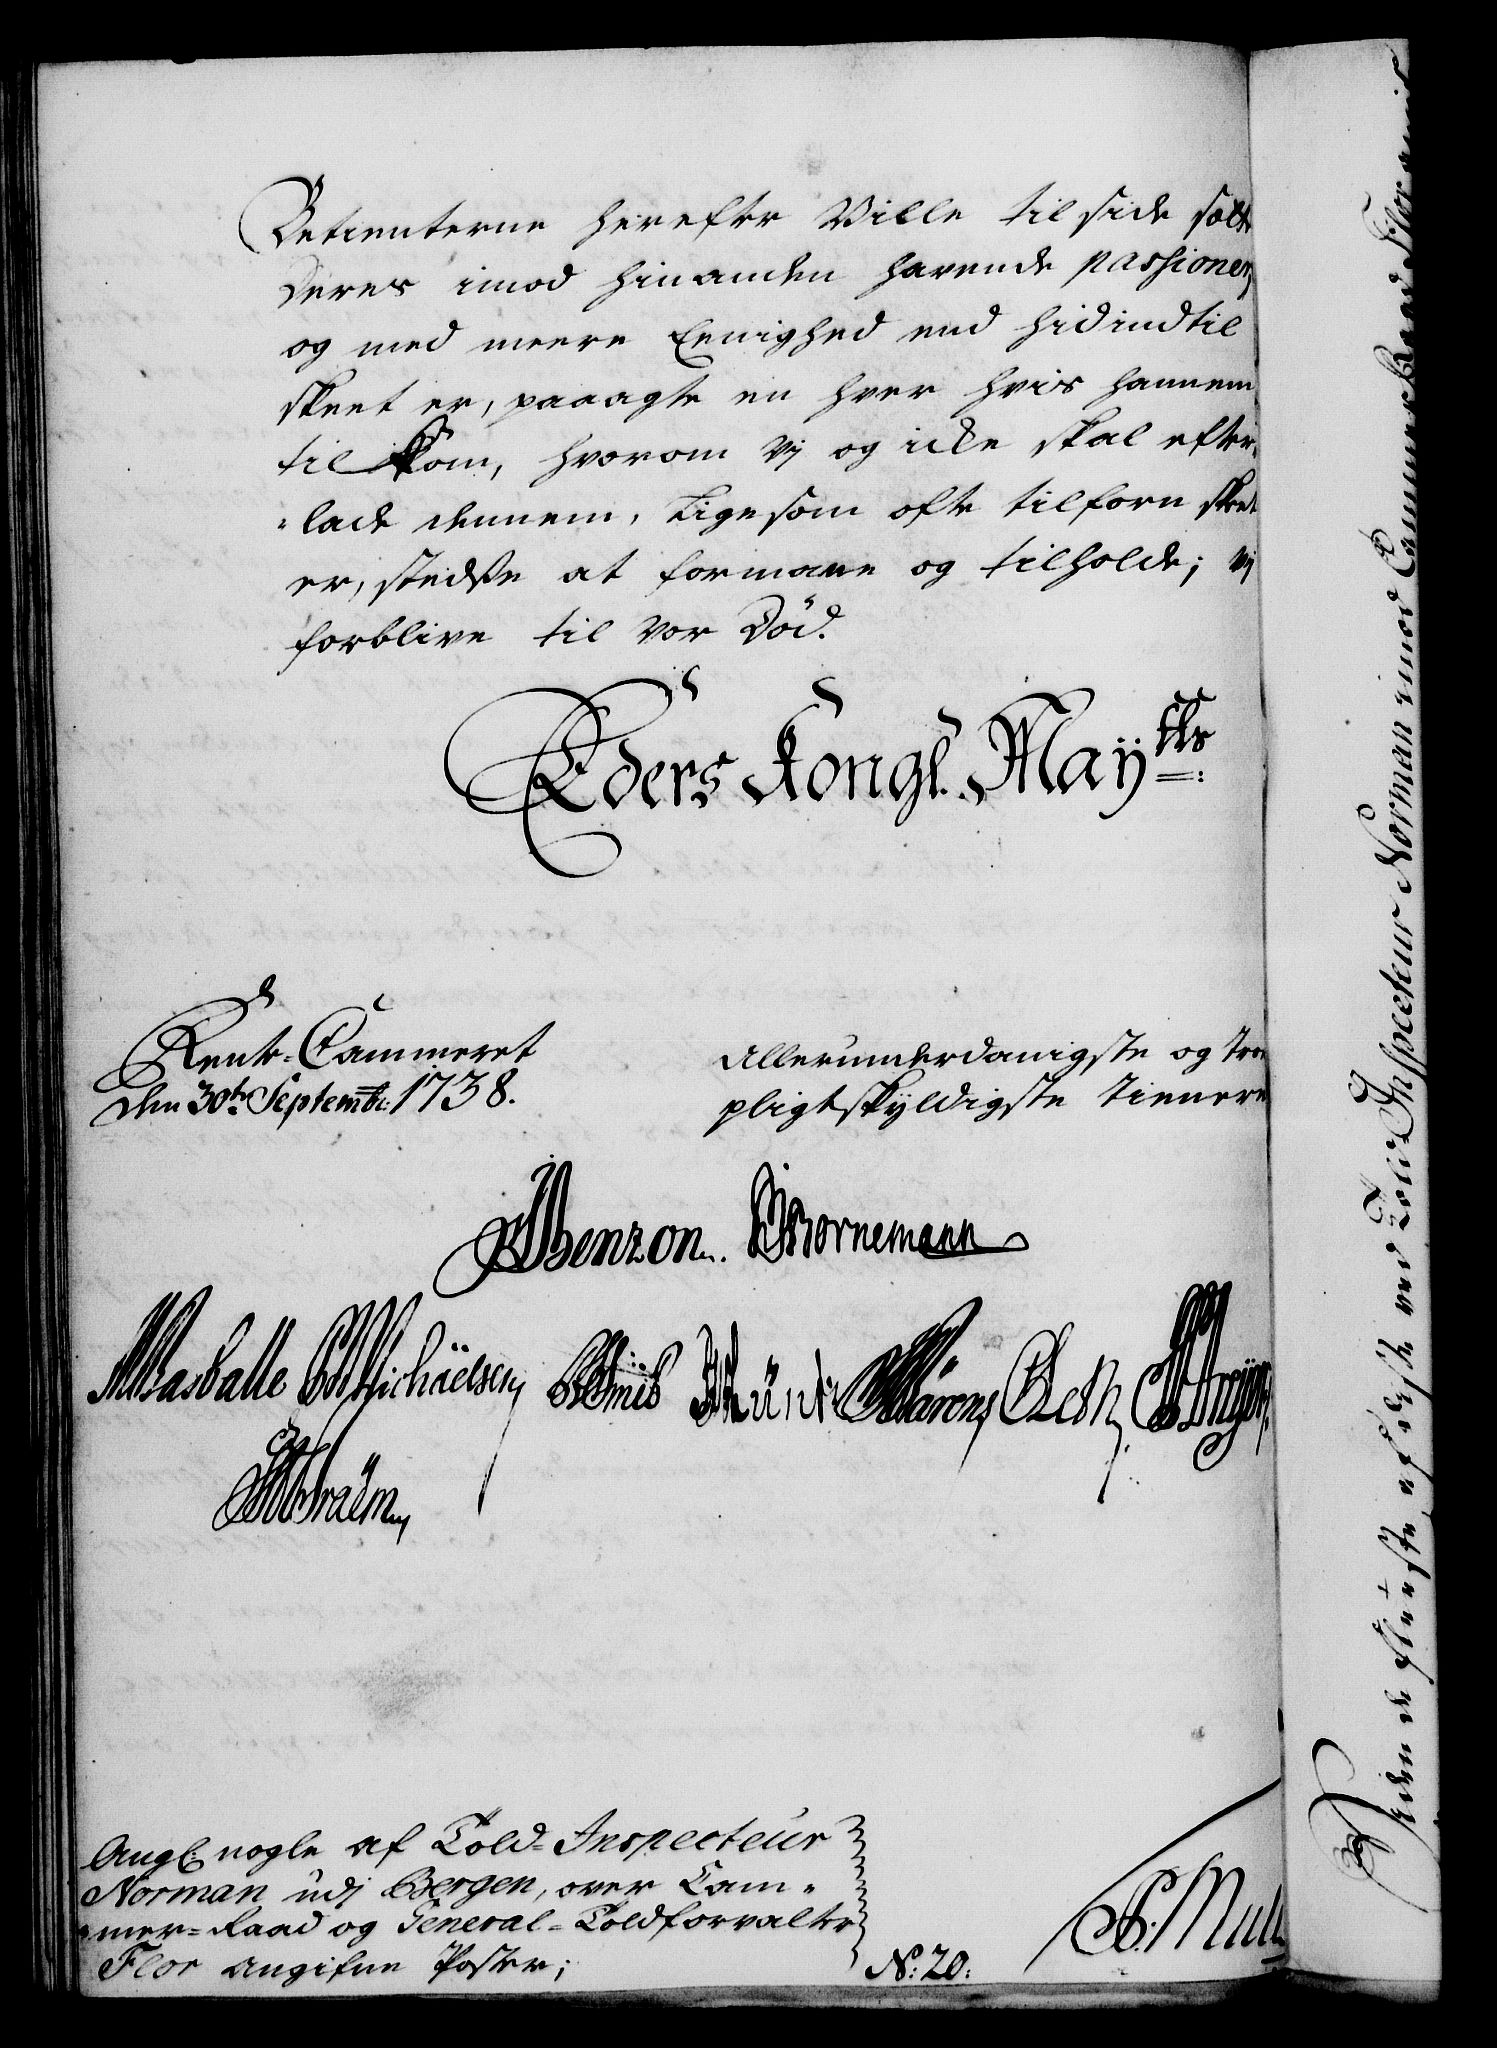 Betienterne herefter Ville til side sætte
deres imod hinanden havende passioner,
og med meere Eenighed end hidindtil
skeet er, paaagte en hver hvis hannem
til kom, hvorom vj og icke skal efter-
-lade dennem, Ligesom ofte tilforn skeet
er, stedsse at formane og tilholde; vj
forblive til vor Død.
Eders Kongl. Mayts:
Rente-Cammeret
den 30te Septembr: 1738.
allerunderdanigste og troe
pligtskyldigste tienere
Benzon. Bornemann
Masballe Michaëlsen Münch Wärens
Angl: nogle af Told-Inspecteur
Norman udj Bergen, over Cam-
-mer-Raad og General-Toldforvalter
Flor angifne Poster;
N: 20:
Told-Inspecteur Norman imod Cammer Raad Flor